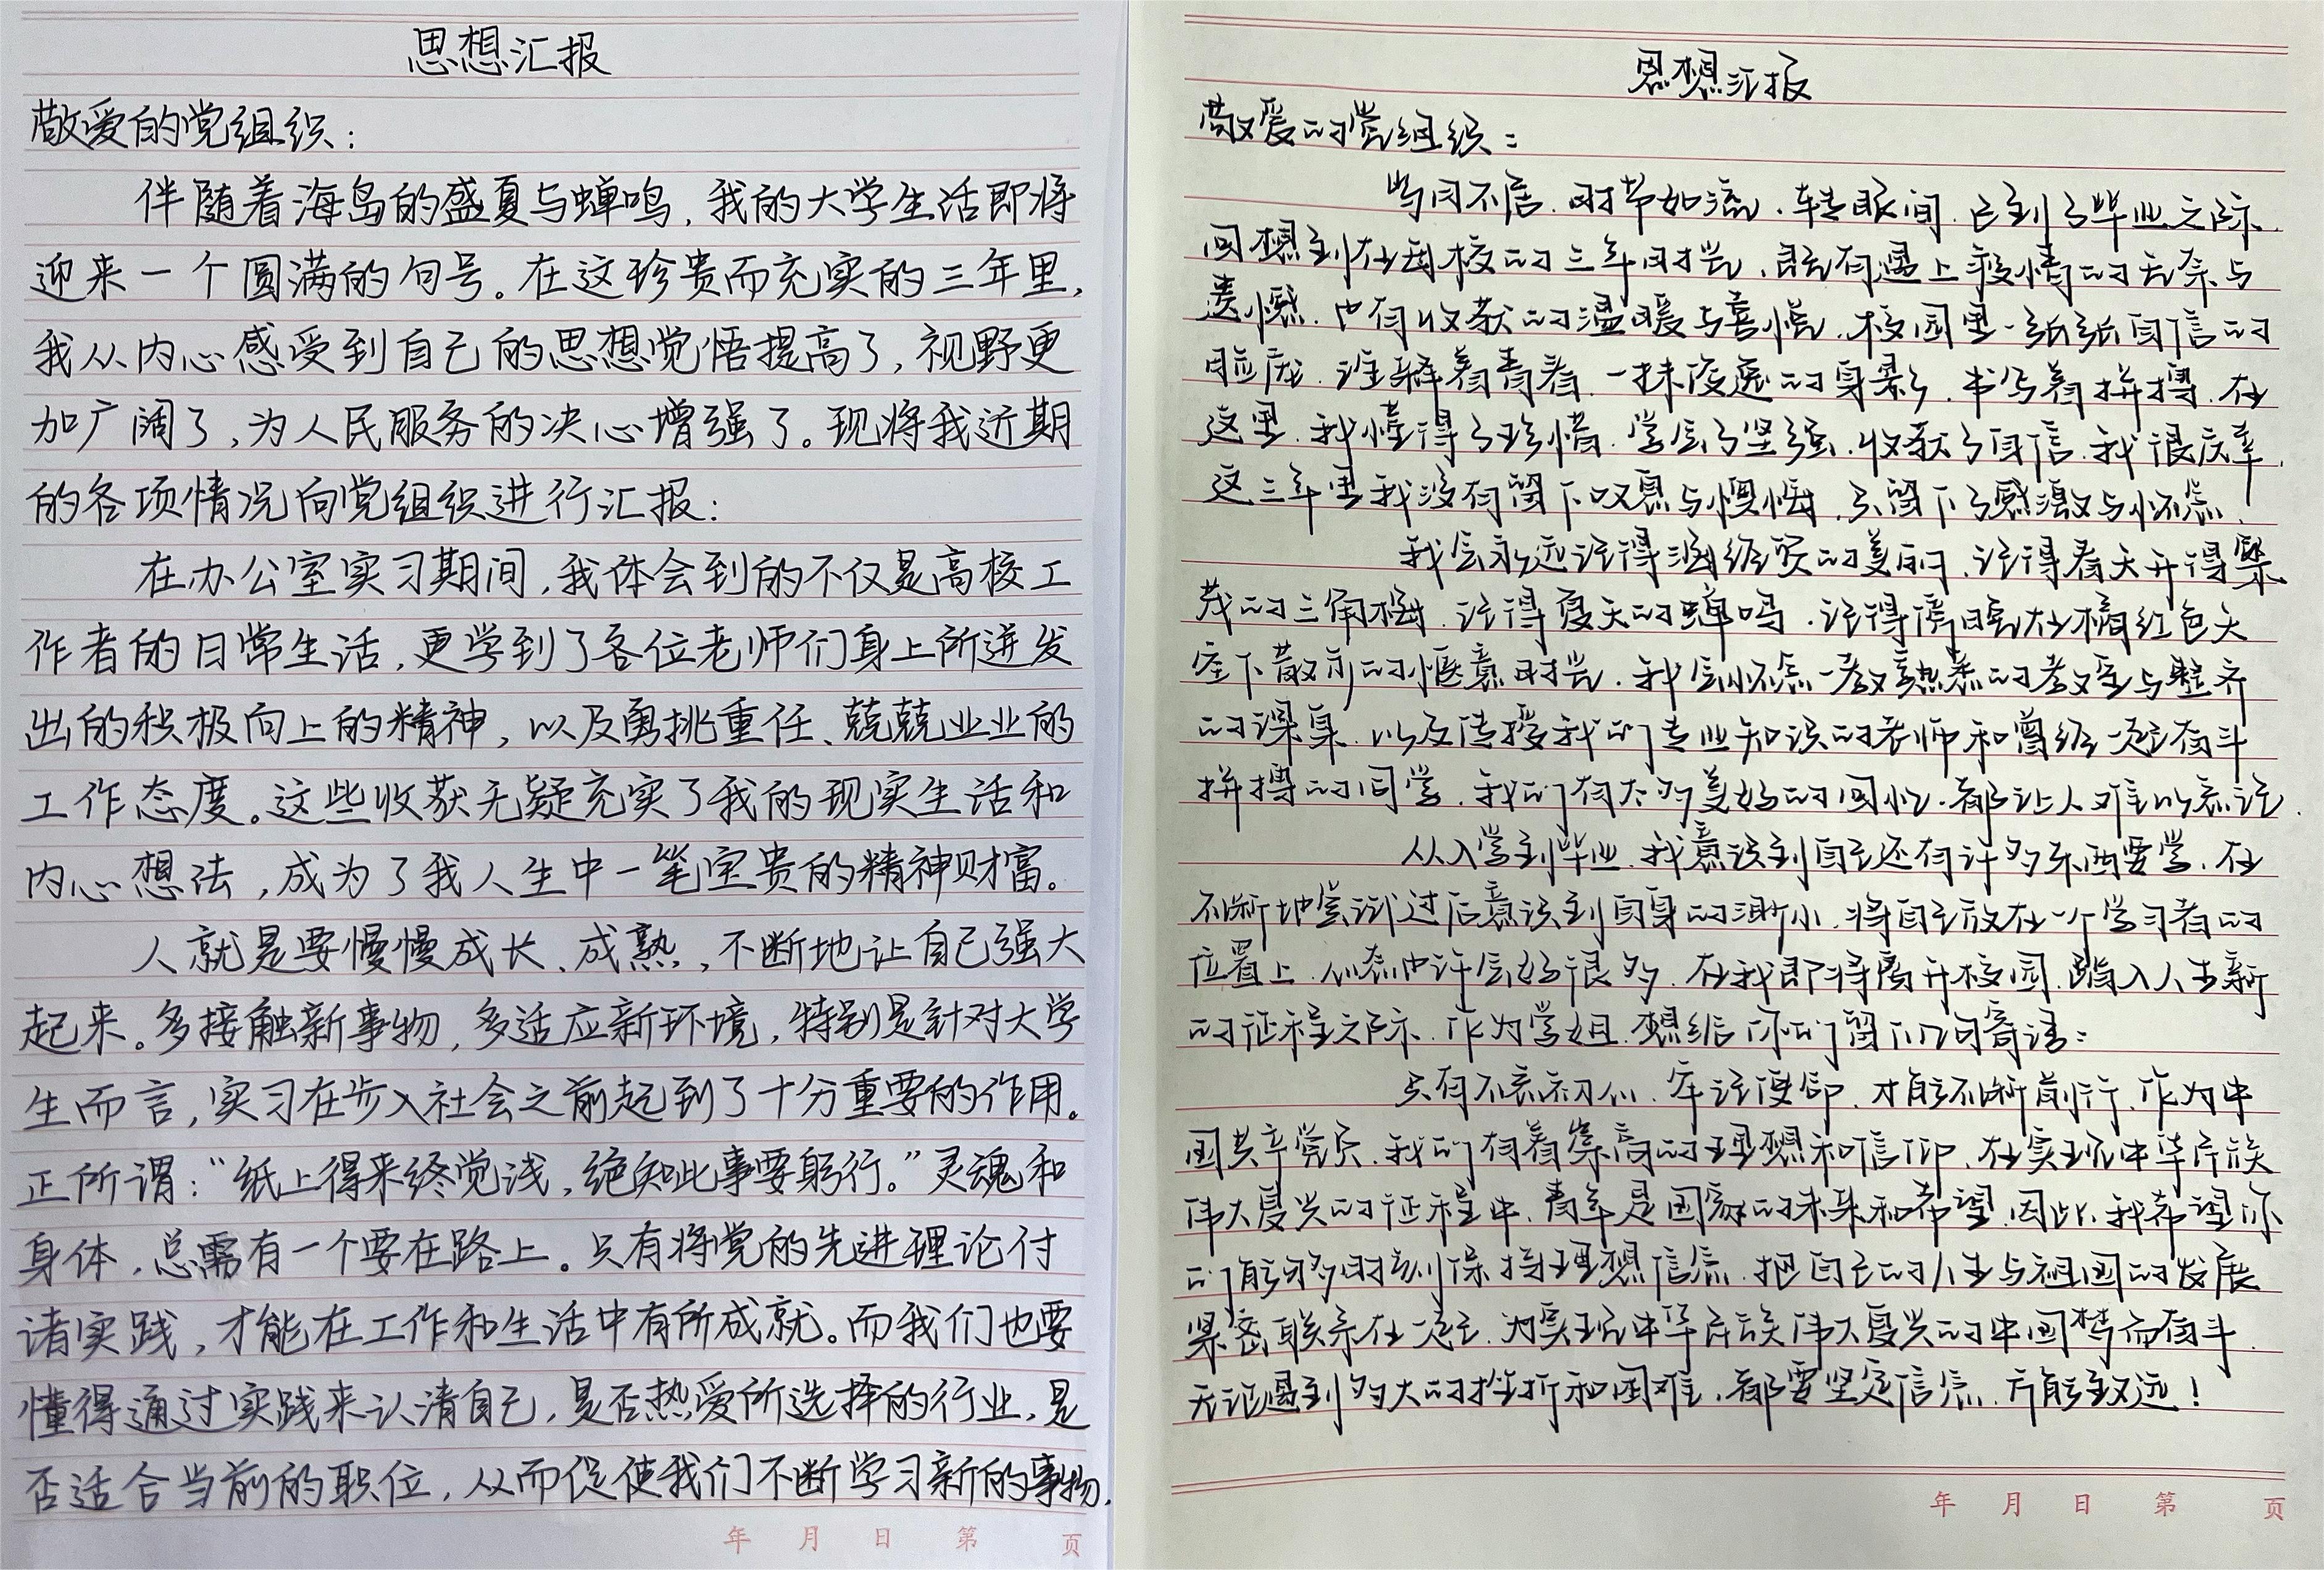 思想汇报
敬爱的党组织：
伴随着海岛的盛夏与蝉鸣，我的大学生活即将
迎来一个圆满的句号。在这珍贵而充实的三年里，
我从内心感受到自己的思想觉悟提高了，视野更
加广阔了，为人民服务的决心增强了。现将我近期
的各项情况向党组织进行汇报：
在办公室实习期间，我体会到的不仅是高校工
作者的日常生活，更学到了各位老师们身上所迸发
出的积极向上的精神，以及勇挑重任、兢兢业业的
工作态度。这些收获无疑充实了我的现实生活和
内心想法，成为了我人生中一笔宝贵的精神财富。
人就是要慢慢成长、成熟，不断地让自己强大
起来。多接触新事物，多适应新环境，特别是针对大学
生而言，实习在步入社会之前起到了十分重要的作用。
正所谓：“纸上得来终觉浅，绝知此事要躬行。”灵魂和
身体，总需有一个要在路上。只有将党的先进理论付
诸实践，才能在工作和生活中有所成就。而我们也要
懂得通过实践来认清自己，是否热爱所选择的行业，是
否适合当前的职位，从而促使我们不断学习新的事物，
年 月 日 第 页
思想汇报
敬爱的党组织：
岁月不居，时节如流，转眼间，已到了毕业之际，
回想到在母校的三年时光，既有遇上疫情的无奈与
遗憾，也有收获的温暖与喜悦，校园里一张张自信的
脸庞，诠释着青春，一抹俊逸的身影，书写着拼搏，在
这里，我懂得了珍惜，学会了坚强，收获了自信，我很庆幸，
这三年里我没有留下叹息与懊悔，只留下了感激与怀念，
我会永远记得涵经贸的美丽，记得春天开得繁
茂的三角梅，记得夏天的蝉鸣，记得傍晚在橘红色天
空下散步的惬意时光，我会怀念一教熟悉的教室与整齐
的课桌，以及传授我们专业知识的老师和曾经一起奋斗
拼搏的同学，我们有太多美好的回忆，都让人难以忘记，
从入学到毕业，我意识到自己还有许多东西要学，在
不断地尝试过后意识到自身的渺小，将自己放在一个学习者的
位置上，心态也许会好很多，在我即将离开校园，踏入人生新
的征程之际，作为学姐，想给你们留下几句寄语：
只有不忘初心，牢记使命，才能不断前行，作为中
国共产党员，我们有着崇高的理想和信仰，在实现中华民族
伟大复兴的征程中，青年是国家的未来和希望，因此，我希望你
们能够时刻保持理想信念，把自己的人生与祖国的发展
紧密联系在一起，为实现中华民族伟大复兴的中国梦而奋斗，
无论遇到多大的挫折和困难，都要坚定信念，方能致远！
年 月 日 第 页